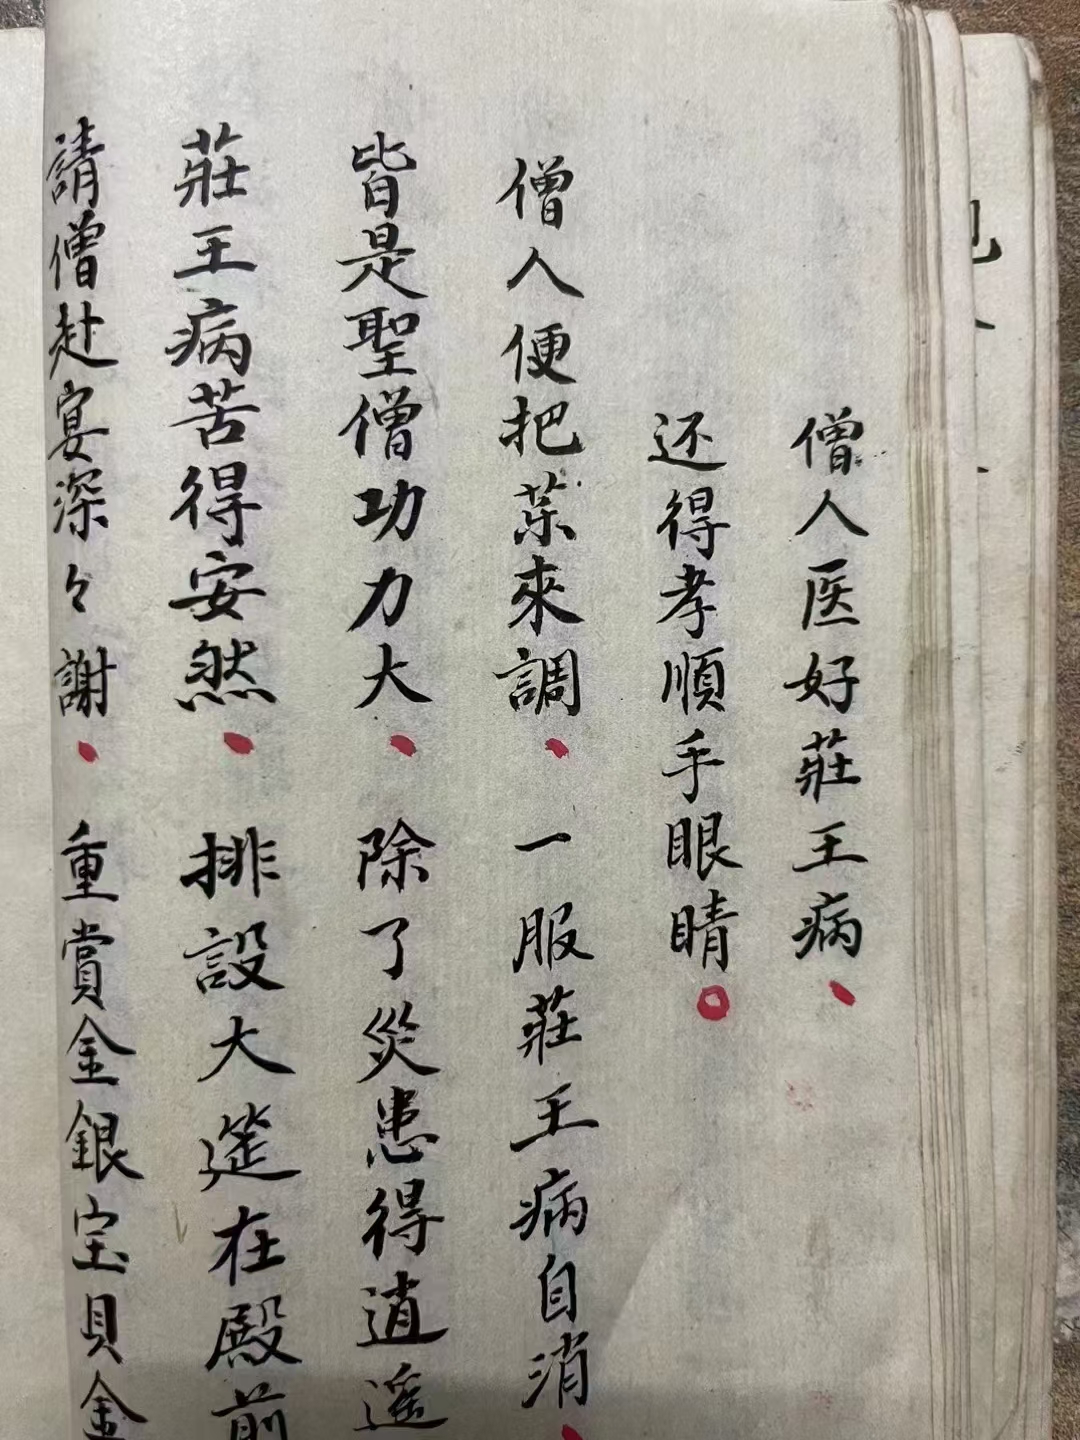 僧人医好莊王病
还得孝順手眼睛
僧人便把茶來調 一服莊王病自消
皆是聖僧功力大 除了災患得逍遥
莊王病苦得安然 排設大筵在殿前
請僧赴宴深々謝 重賞金銀宝貝金